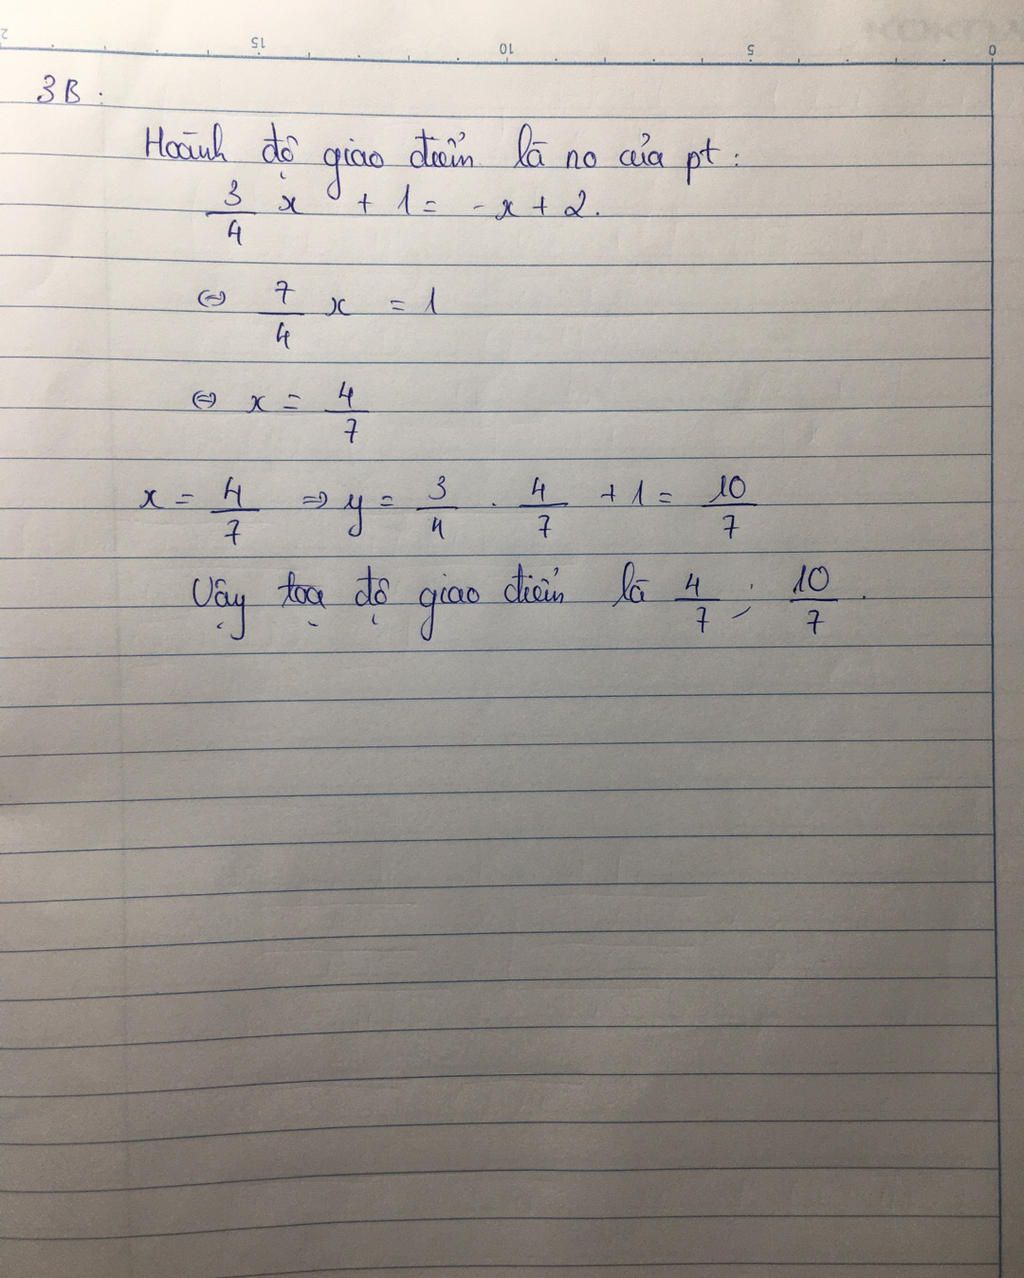 2 15 10 5 0
3B:
Hoành độ giao điểm là no của pt:
3/4 x + 1 = -x + 2.
⇔ 7/4 x = 1
⇔ x = 4/7
x = 4/7 ⇒ y = 3/4 . 4/7 + 1 = 10/7
Vậy toạ độ giao điểm là 4/7 ; 10/7 .